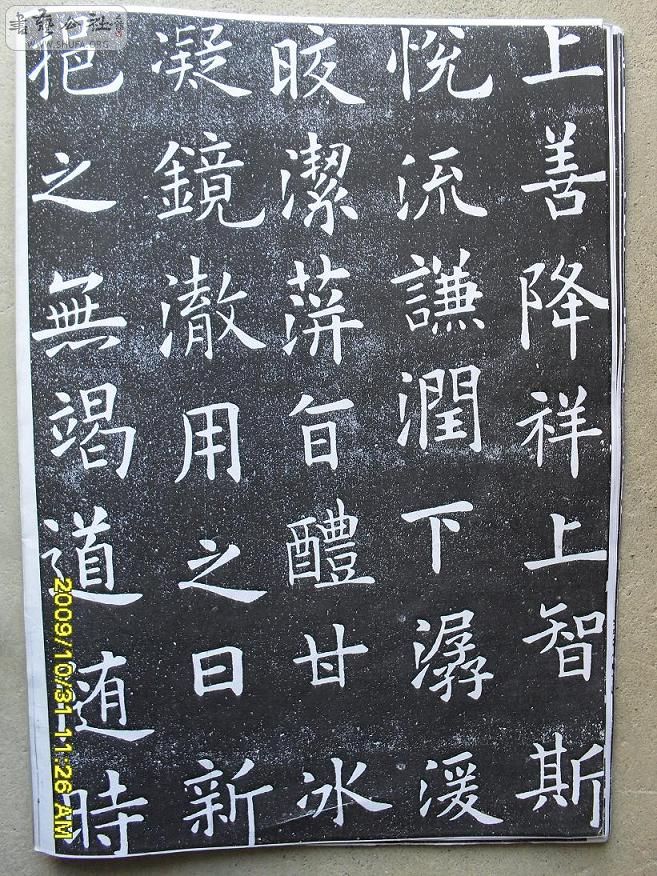 上善降祥上智斯
悅流謙潤下潺湲
晈潔蓱旨醴甘冰
凝鏡澈用之日新
挹之無竭道随時
書藝公社
WWW.SHUFA.ORG
2009/10/31 11:26 AM